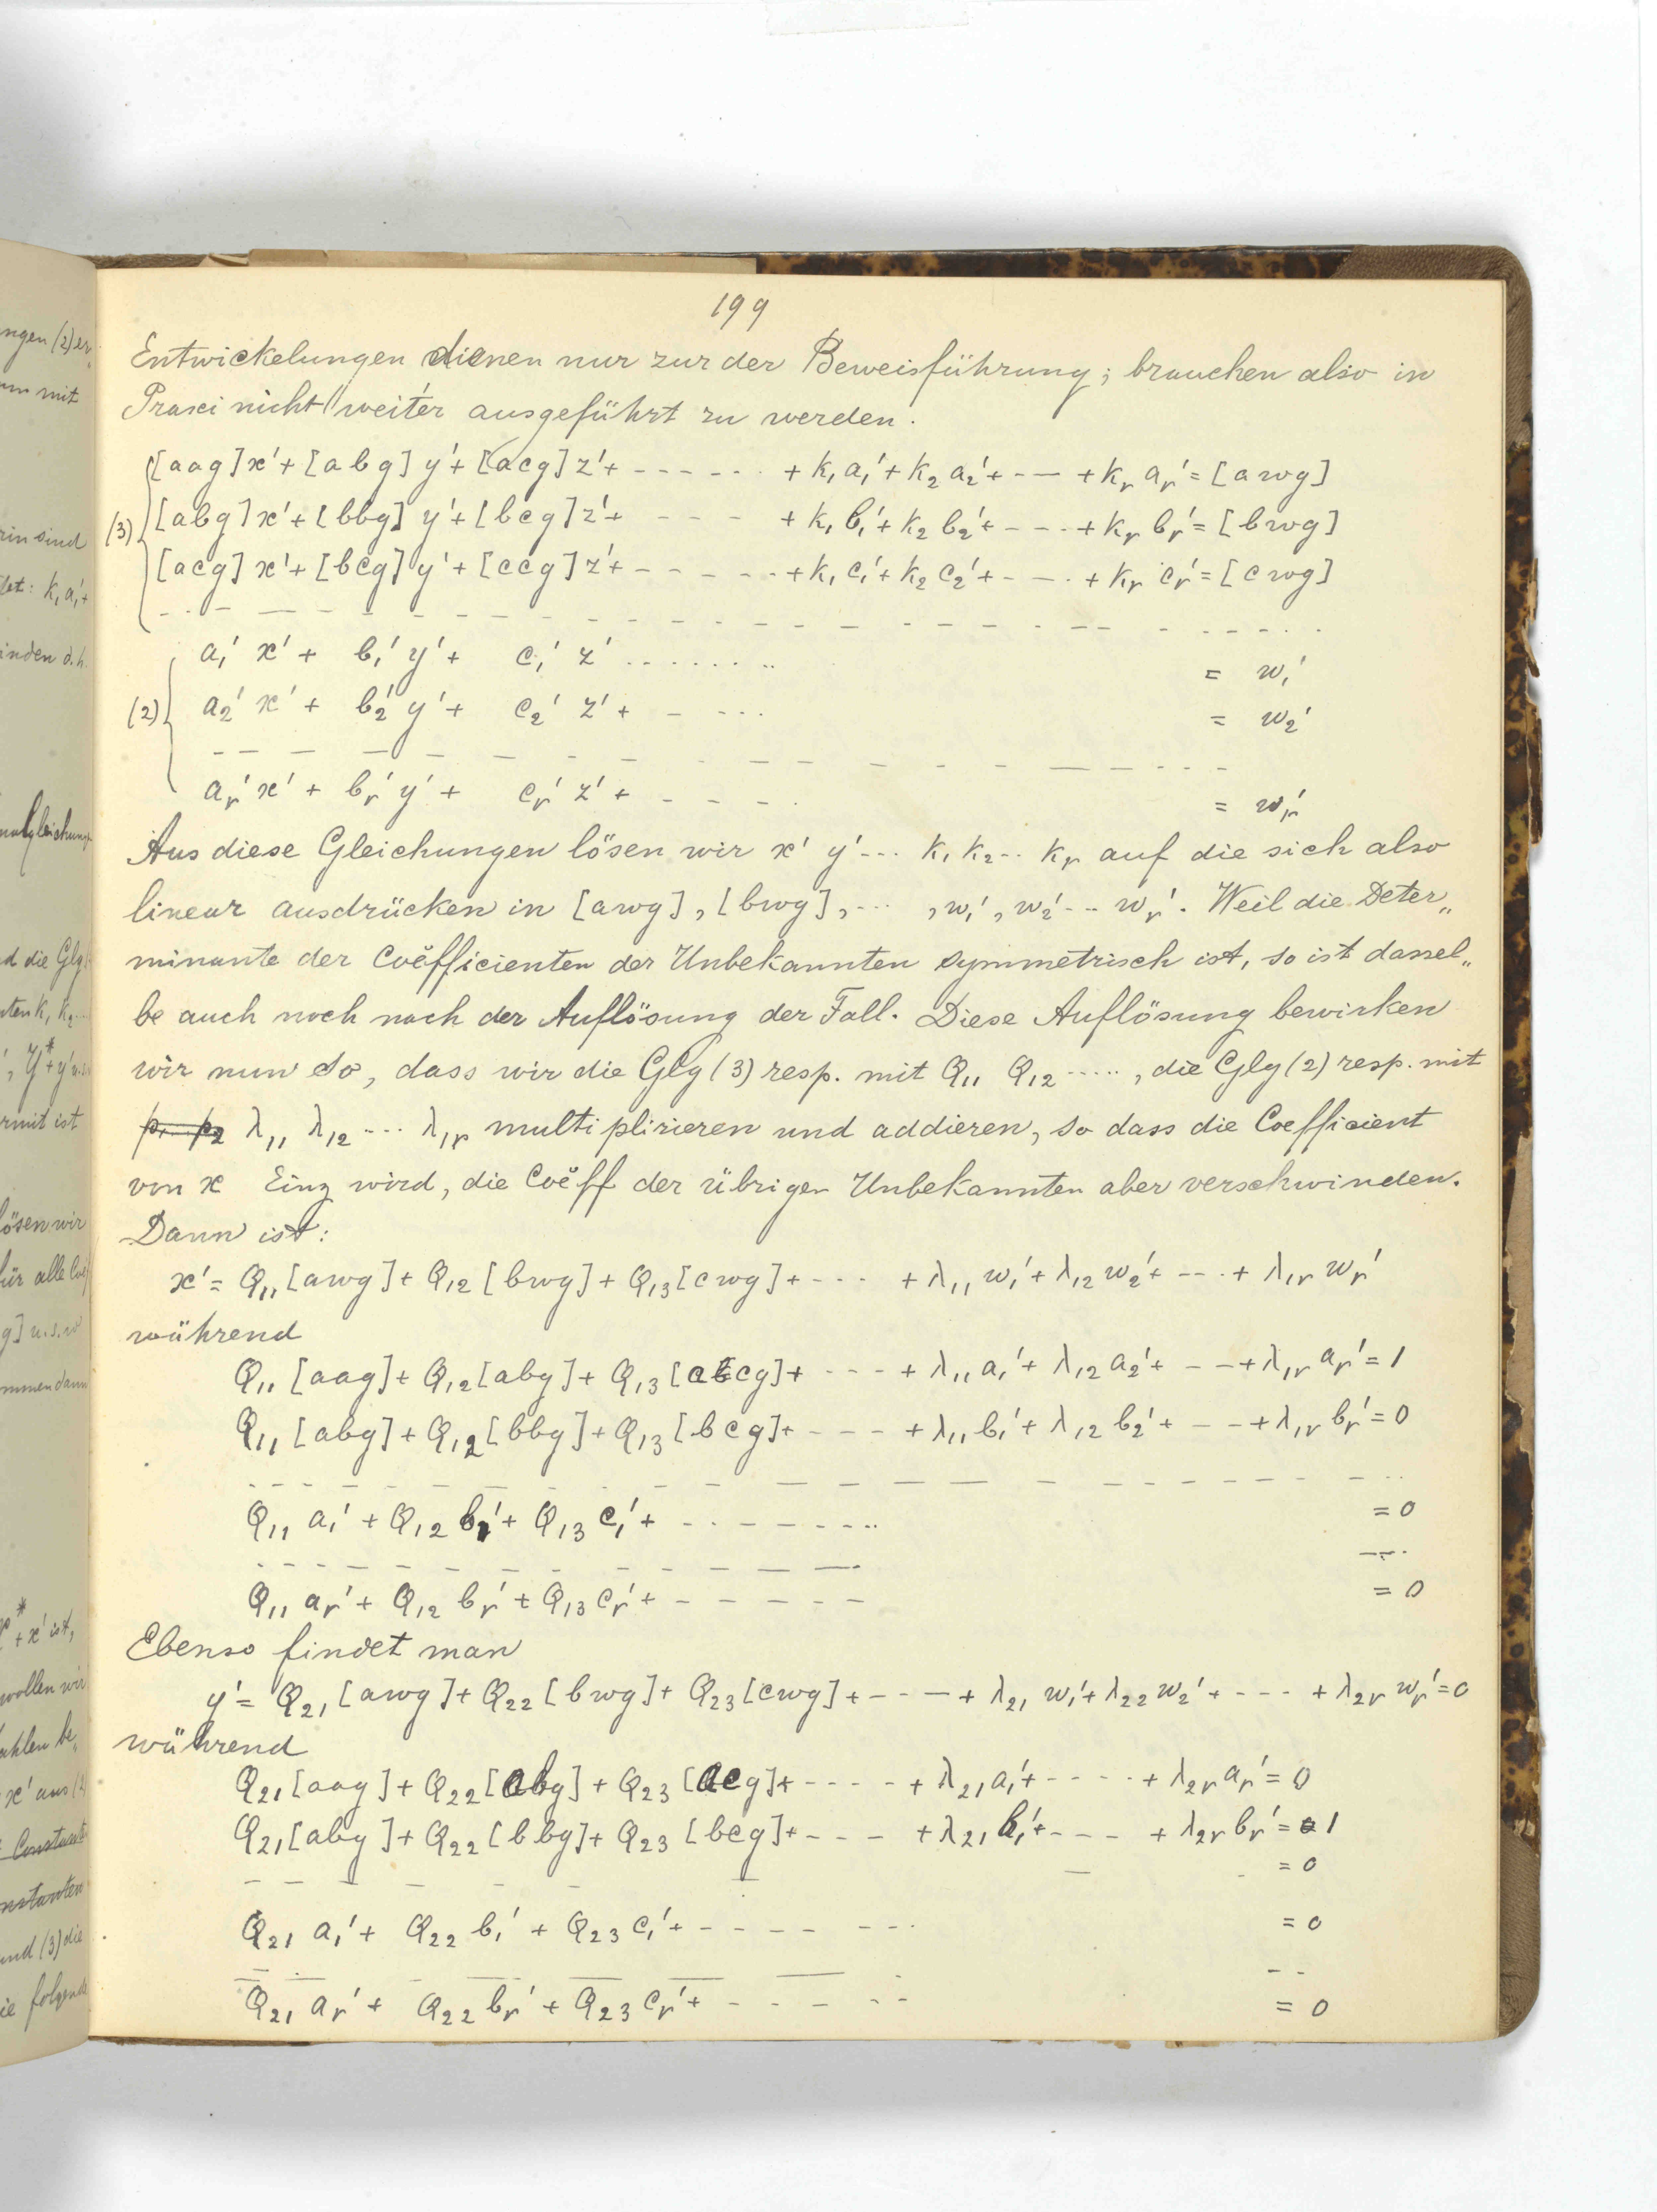 199
Entwickelungen dienen nur zur der Beweisführung; brauchen also in
Praxi nicht weiter ausgeführt zu werden.
[aag]x'+[abg]y'+[acg]z'+ ------ +k₁a₁'+k₂a₂'+--- +kᵣaᵣ'=[awg]
(3) [abg]x'+[bbg]y'+[bcg]z'+ ---- +k₁b₁'+k₂b₂'+----+kᵣbᵣ'=[bwg]
[acg]x'+[bcg]y'+[ccg]z'+ ------+k₁c₁'+k₂c₂'+---.+kᵣcᵣ'=[cwg]
a₁'x'+ b₁'y'+ c₁'z' ........ = w₁'
(2) a₂'x'+ b₂'y'+ c₂'z'+ ---- = w₂'
aᵣ'x'+ bᵣ'y'+ cᵣ'z'+ ---- = wᵣ'
Aus diese Gleichungen lösen wir x' y'--- k₁ k₂-- kᵣ auf die sich also
linear ausdrücken in [awg], [bwg],--- ,w₁', w₂'--- wᵣ'. Weil die Deter„
minante der Coëfficienten der Unbekannten symmetrisch ist, so ist dassel„
be auch noch nach der Auflösung der Fall. Diese Auflösung bewirken
wir nun so, dass wir die Glg (3) resp. mit Q₁₁ Q₁₂ ....., die Glg (2) resp. mit
p₁ p₂ λ₁₁ λ₁₂ --- λ₁ᵣ multiplizieren und addieren, so dass die Coefficient
von x Einz wird, die Coëff der übrigen Unbekannten aber verschwinden.
Dann ist:
x'= Q₁₁[awg]+Q₁₂[bwg]+Q₁₃[cwg]+---- +λ₁₁w₁'+λ₁₂w₂'+---.+λ₁ᵣwᵣ'
während
Q₁₁[aag]+Q₁₂[abg]+Q₁₃[acg]+ ---- +λ₁₁a₁'+λ₁₂a₂'+ ---+λ₁ᵣaᵣ'=1
Q₁₁[abg]+Q₁₂[bbg]+Q₁₃[bcg]+---- +λ₁₁b₁'+λ₁₂b₂'+ ---+λ₁ᵣbᵣ'=0
Q₁₁a₁'+Q₁₂b₁'+Q₁₃c₁'+ -------- =0
Q₁₁aᵣ'+Q₁₂bᵣ'+Q₁₃cᵣ'+ ------ =0
Ebenso findet man
y'= Q₂₁[awg]+Q₂₂[bwg]+Q₂₃[cwg]+----+λ₂₁w₁'+λ₂₂w₂'+---- +λ₂ᵣwᵣ'=0
während
Q₂₁[aag]+Q₂₂[abg]+Q₂₃[acg]+----- +λ₂₁a₁'+-----+λ₂ᵣaᵣ'=0
Q₂₁[abg]+Q₂₂[bbg]+Q₂₃[bcg]+---- +λ₂₁b₁'+---- +λ₂ᵣbᵣ'=1
=0
Q₂₁a₁'+Q₂₂b₁'+Q₂₃c₁'+------- =0
Q₂₁aᵣ'+Q₂₂bᵣ'+Q₂₃cᵣ'+ ----- =0